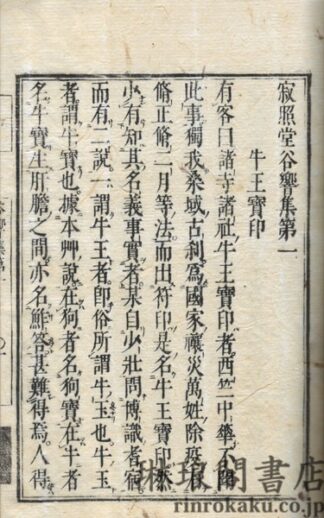 寂照堂谷響集第一
牛王寶印
有客曰諸寺諸社牛王寶印者西竺中華不聞
此事獨我桑域古刹爲國家禳災萬姓除疫有
脩正脩二月等法而出符印是名牛王寶印然
少有知其名義事實者某自少壯問博識者宿
而有二說一謂牛王者卽俗所謂牛玉也牛玉
者謂牛寶也據本艸說在狗者名狗寶在牛者
名牛寶生肝膽之間亦名鮓荅甚難得焉人得
琳琅閣書店
rinrokaku.co.jp